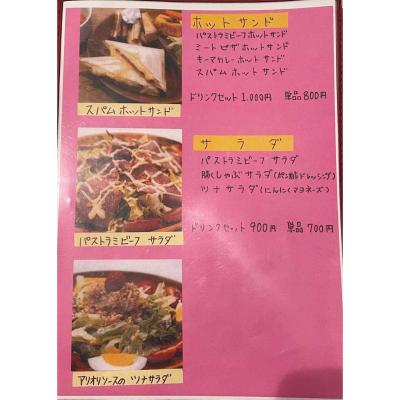 ホットサンド
パストラミビーフホットサンド
ミートピザホットサンド
キーマカレーホットサンド
スパムホットサンド
ドリンクセット 1,000円 単品 800円
スパムホットサンド
サラダ
パストラミビーフ サラダ
豚しゃぶサラダ(ポン酢ドレッシング)
ツナサラダ(にんにくマヨネーズ)
ドリンクセット 900円 単品 700円
パストラミビーフ サラダ
アリオリソースの ツナサラダ